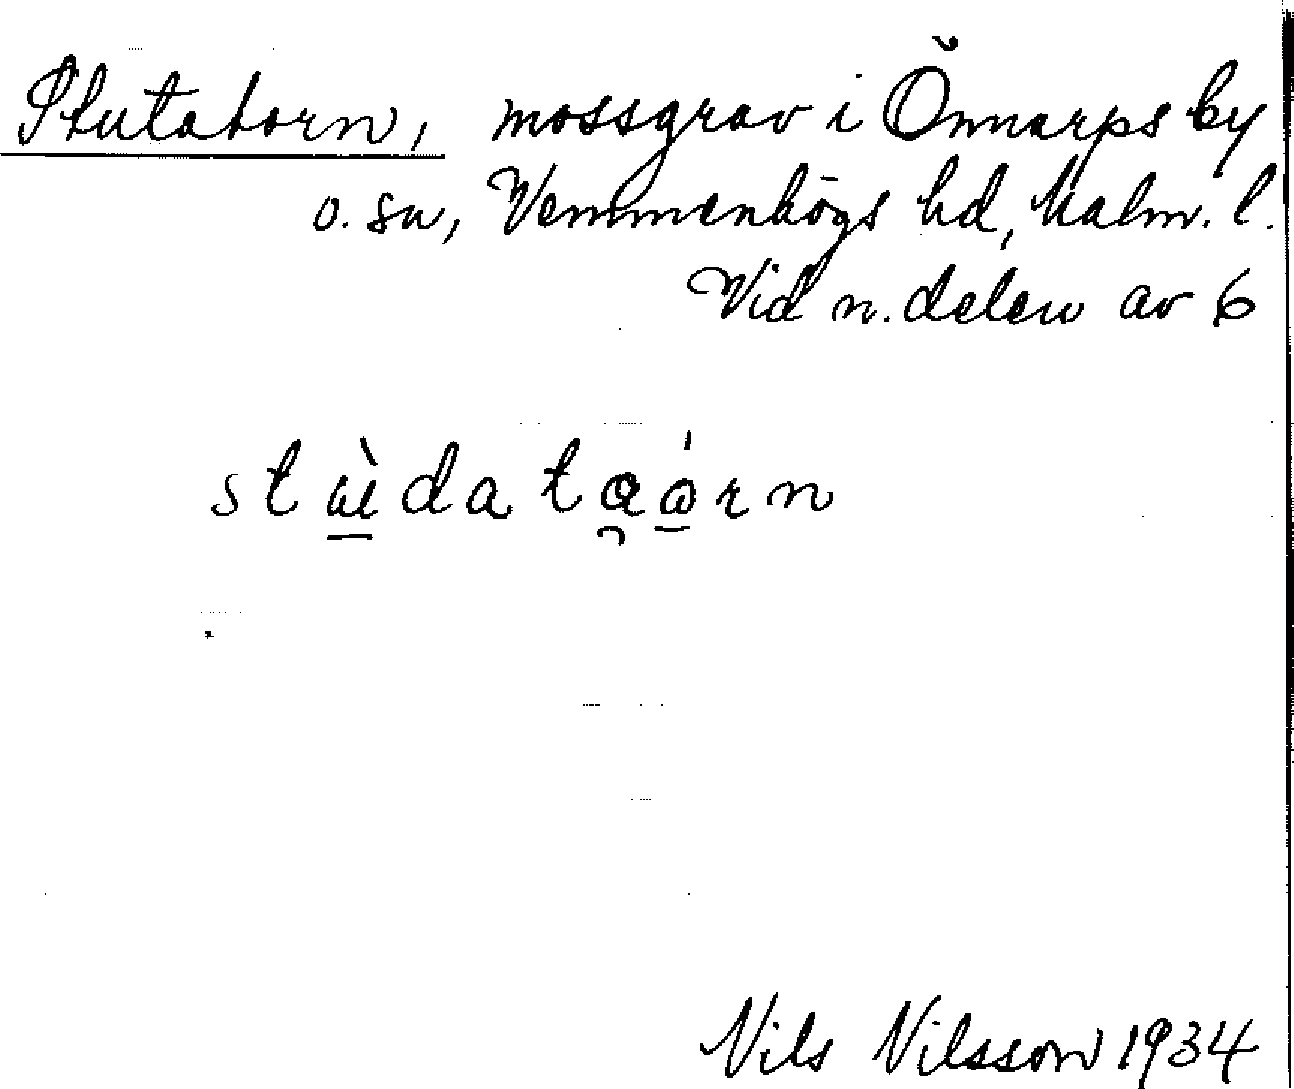 Stutatorn, mossgrav i Önnarps by
o. sn, Vemmenhögs hd, Malm. l.
Vid n. delen av 6
stu̲èdatąǻ̲rn
Nils Nilsson 1934